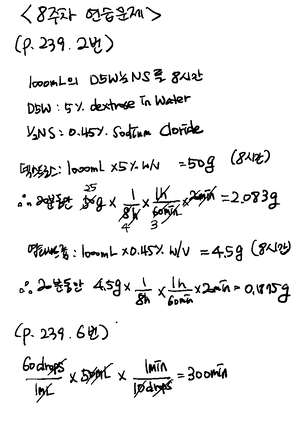 <8주차 연습문제>
(p. 239. 2번)
1000mL의 D5W½NS를 8시간
D5W : 5% dextrose in Water
½NS : 0.45% Sodium Cloride
덱스트로스: 1000mL × 5% w/v = 50g (8시간)
∴ 20분동안 50g × 1/8h × 1h/60min × 20min = 2.083g
25
4 3
염화나트륨: 1000mL × 0.45% w/v = 4.5g (8시간)
∴ 20분동안 4.5g × 1/8h × 1h/60min × 20min = 0.1875g
(p. 239. 6번)
60drops/1mL × 50mL × 1min/10drops = 300min